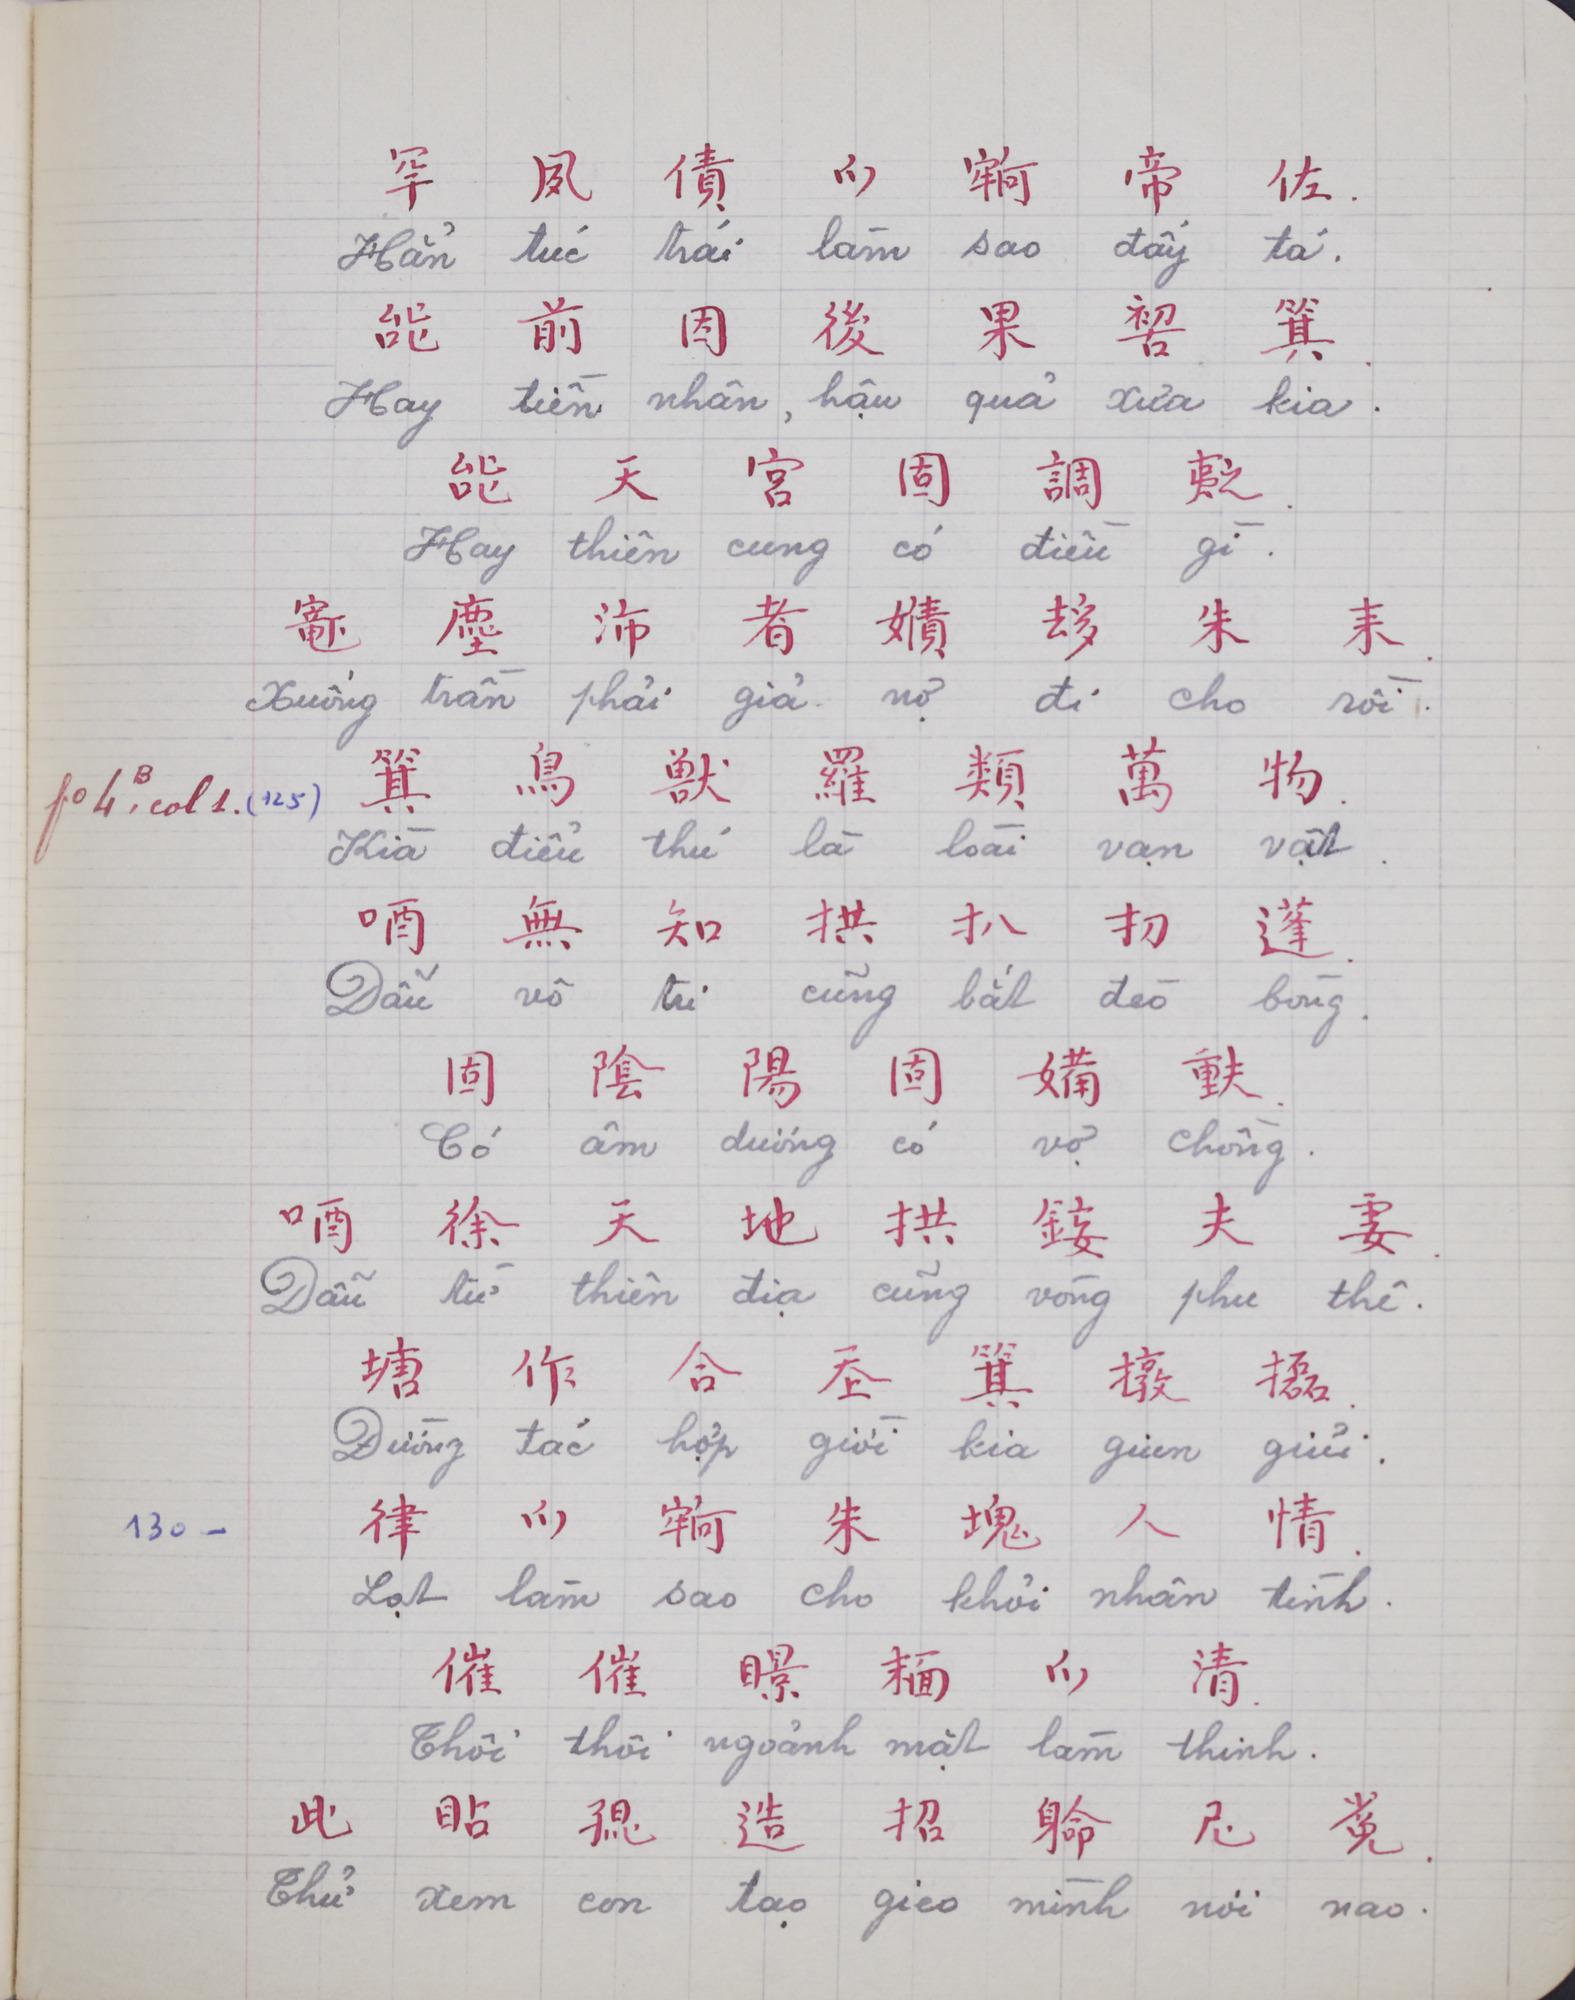 罕 夙 債 爫 𫳵 帝 佐.
Hẳn túc trái làm sao đấy tá.
能 前 因 後 果 初 箕.
Hay tiền nhân, hậu quả xưa kia.
能 天 宮 固 調
Hay thiên cung có điều gì.
塵 沛 者 朱 耒.
Xuống trần phải giả nợ đi cho rồi.
fo 4B, col 1. (125) 箕 鳥 獸 羅 類 萬 物.
Kìa điểu thú là loài vạn vật.
唒 無 知 拱 扒 扨 蓬.
Dẫu vô tri cũng bắt đèo bòng.
固 陰 陽 固 𡞕 重夫.
Có âm dương có vợ chồng.
唒 徐 天 地 拱 夫 妻.
Dẫu từ thiên địa cũng vòng phu thê.
塘 作 合 𡗶 箕 撴 𢷀.
Đường tác hợp giời kia giun giủi.
130 – 律 爫 𫳵 朱 塊 人 情.
Lọt làm sao cho khỏi nhân tình.
催 催 𥋓 𩈘 爫 清.
Thôi thôi ngoảnh mặt làm thinh.
此 䀡 𡥵 造 招 𨉟 尼 𱜢.
Thử xem con tạo gieo mình nơi nao.